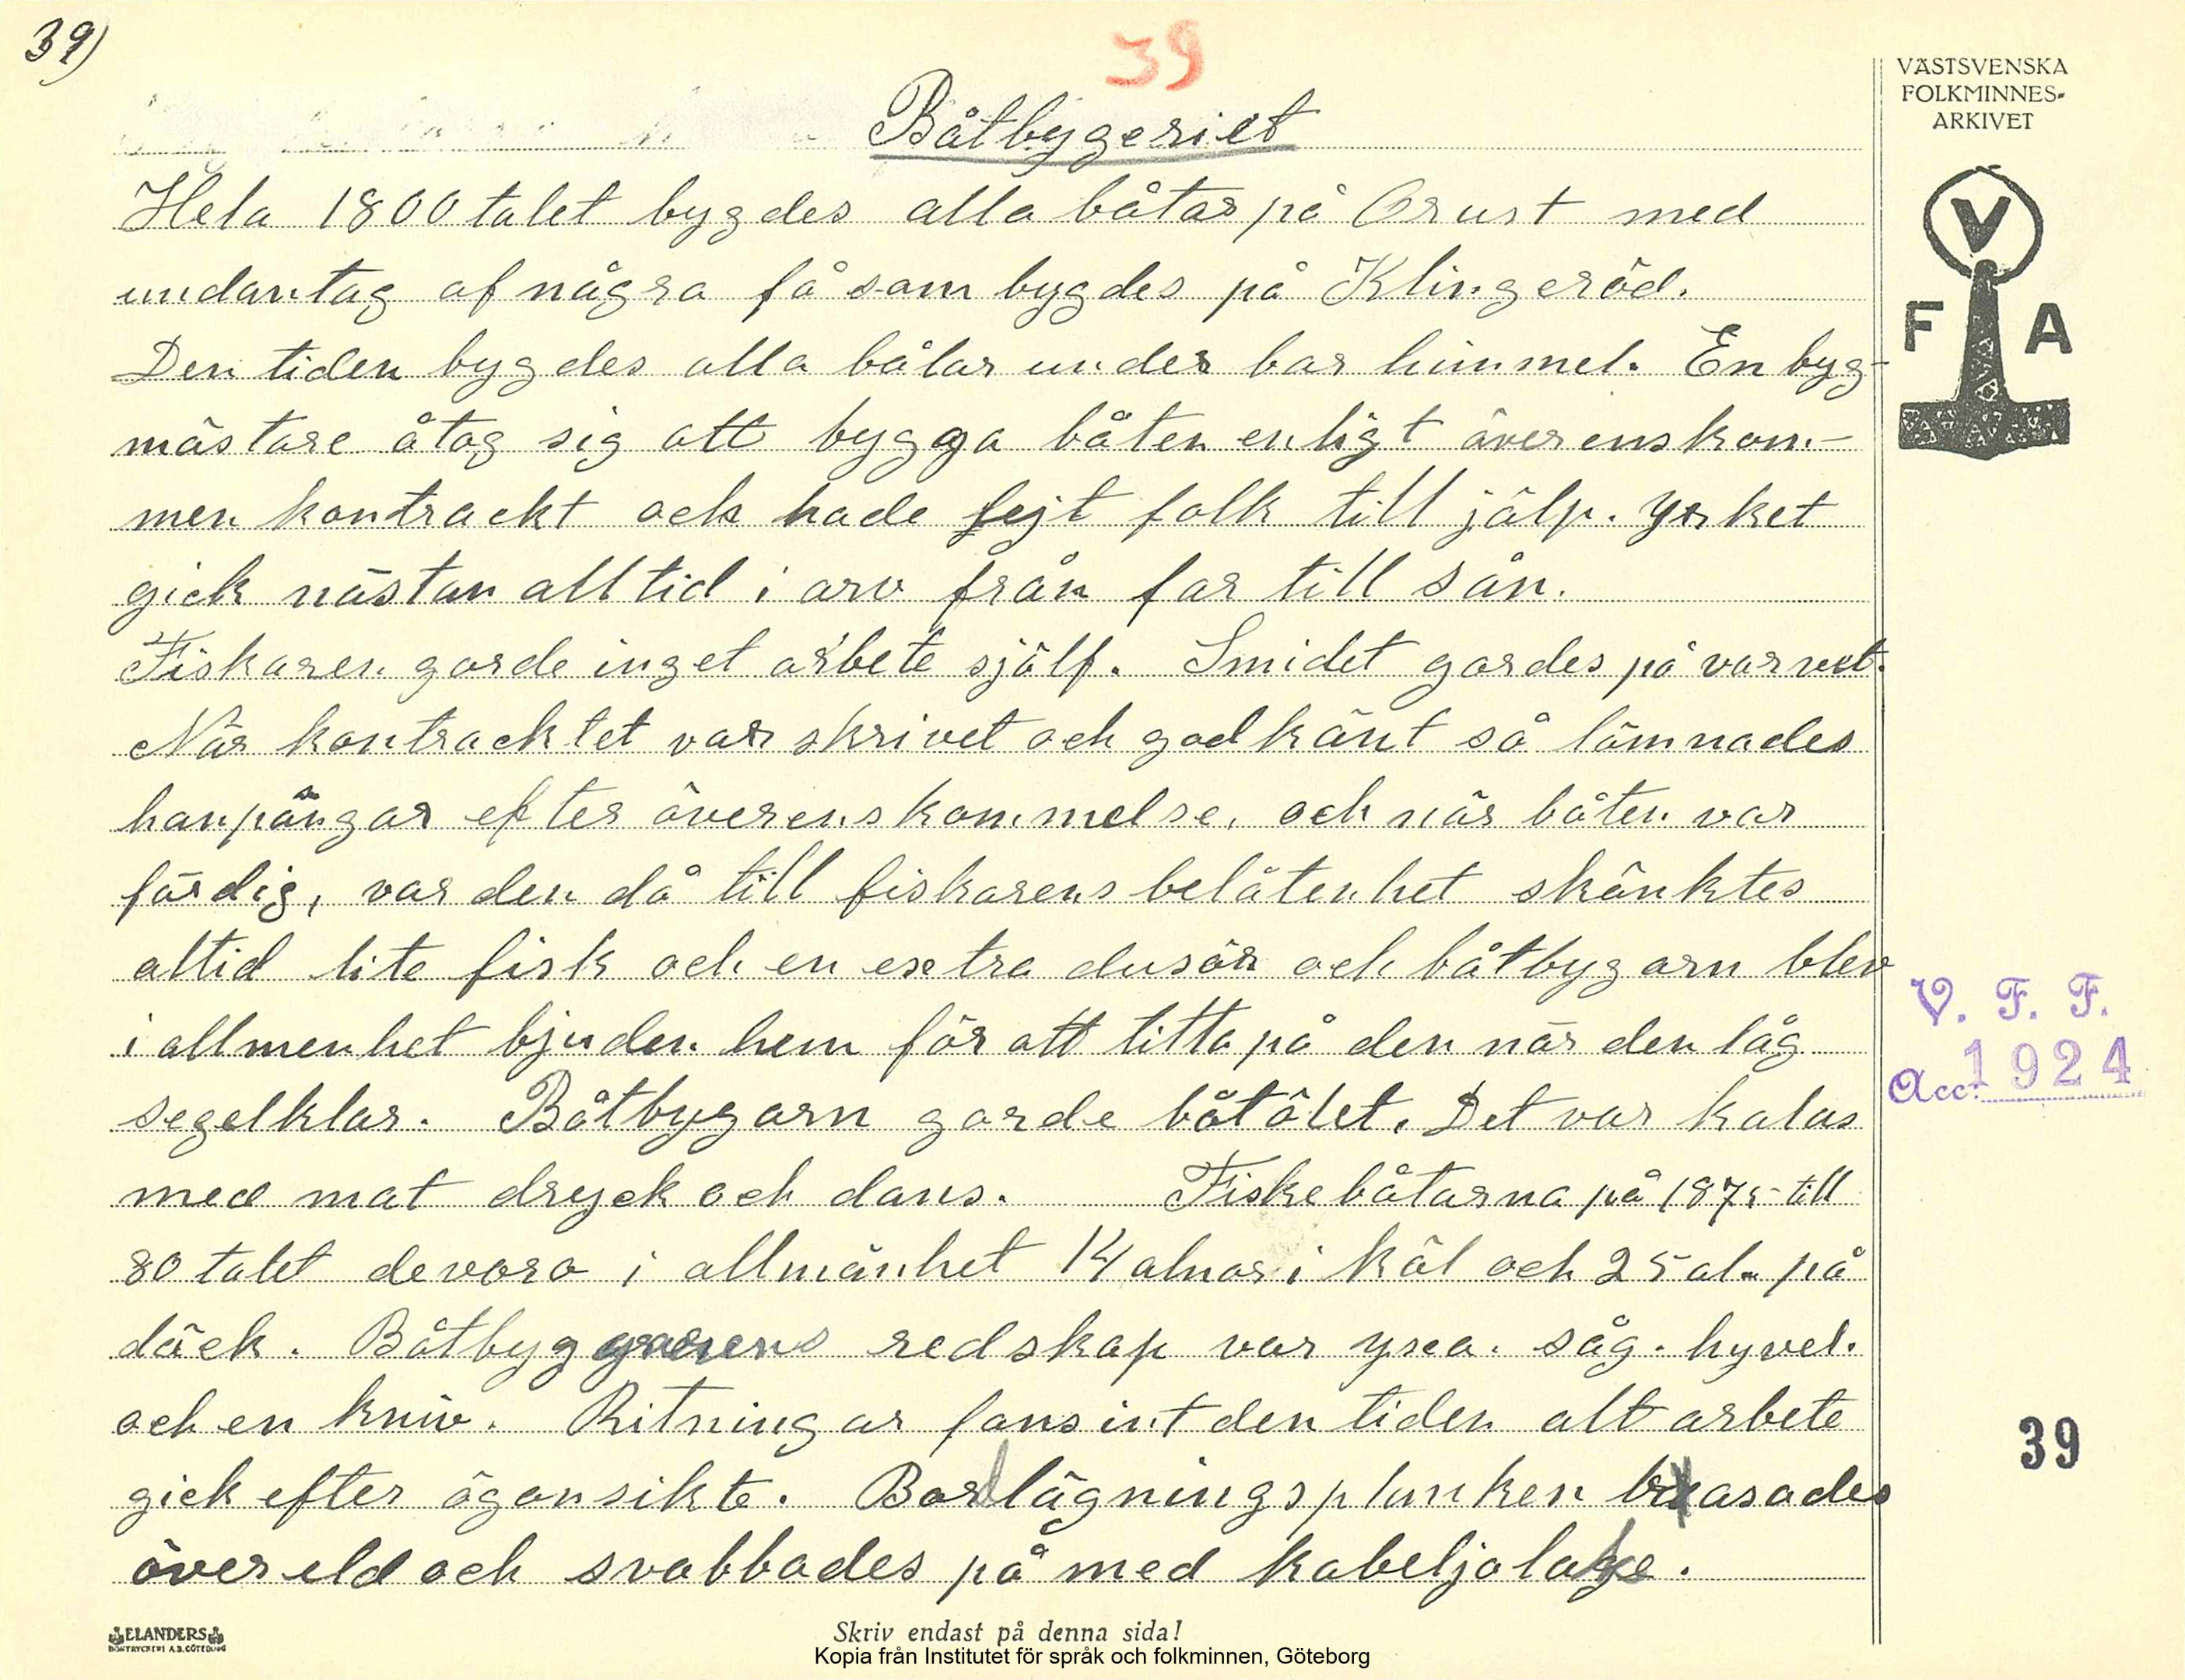 39)
39
Båtbygeriet
Hela 1800 talet bygdes alla båtar på Orust med
undantag af några få som bygdes på Klingeröd.
Den tiden bygdes alla båtar under bar himmel. En byg-
mästare åtog sig att bygga båten enligt överenskom-
men kontrackt och hade lejt folk till jälp. Yrket
gick nästan alltid i arv från far till sån.
Fiskaren gorde inget arbete sjölf. Smidet gordes på varvet.
När kontracktet var skrivet och godkänt så lämnades
hanpängar efter överenskommelse, och när båten var
färdig, var den då till fiskarens belåtenhet skänktes
altid lite fisk och en extra dusör och båtbygarn blev
i allmenhet bjuden hem för att titta på den när den låg
segelklar. Båtbygarn gorde båtölet. Det var kalas
med mat dryck och dans. Fiskebåtarna på 1875-till
80 talet de voro i allmänhet 14 alnar i köl och 25 al. på
däck. Båtbyggarens redskap var yxa. såg. hyvel.
och en kniv. Ritningar fans int den tiden alt arbete
gick efter ögonsikte. Bordlägningsplanken basades
över eld och svabbades på med kabeljolake.
VÄSTSVENSKA
FOLKMINNES-
ARKIVET
V
F A
V. F. F.
Acc. 1924
39
ELANDERS
BOKTRYCKERI A.B. GÖTEBORG
Skriv endast på denna sida!
Kopia från Institutet för språk och folkminnen, Göteborg